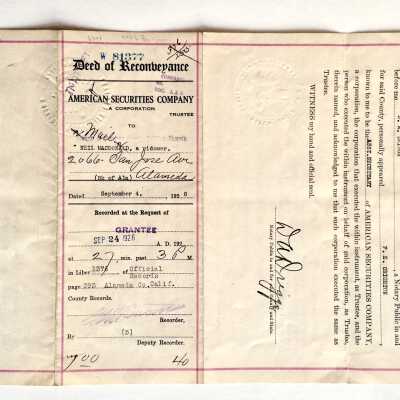 W 81377
Deed of Reconveyance
AMERICAN SECURITIES COMPANY
A CORPORATION,
TRUSTEE
TO
Mail
NEIL MACDONALD, a widower.
2066 San Jose Ave
(Nk of Ala) Alameda
Dated September 4, 192
Recorded at the Request of
GRANTEE
SEP 24 1926 A. D. 192
at 27 min. past 3 P M.
in Liber of Official
Records
page Alameda Co. Calif.
County Records.
Recorder,
By (5)
Deputy Recorder.
before me
, a Notary Public in and
for said County, personally appeared
known to me to be the ASST. SECRETARY of AMERICAN SECURITIES COMPANY,
a corporation, the corporation that executed the within instrument, as Trustee, and the
person who executed the within instrument on behalf of said corporation, as Trustee,
therein named, and acknowledged to me that such corporation executed the same as
Trustee.
WITNESS my hand and official seal.
Notary Public in and for said County and State.